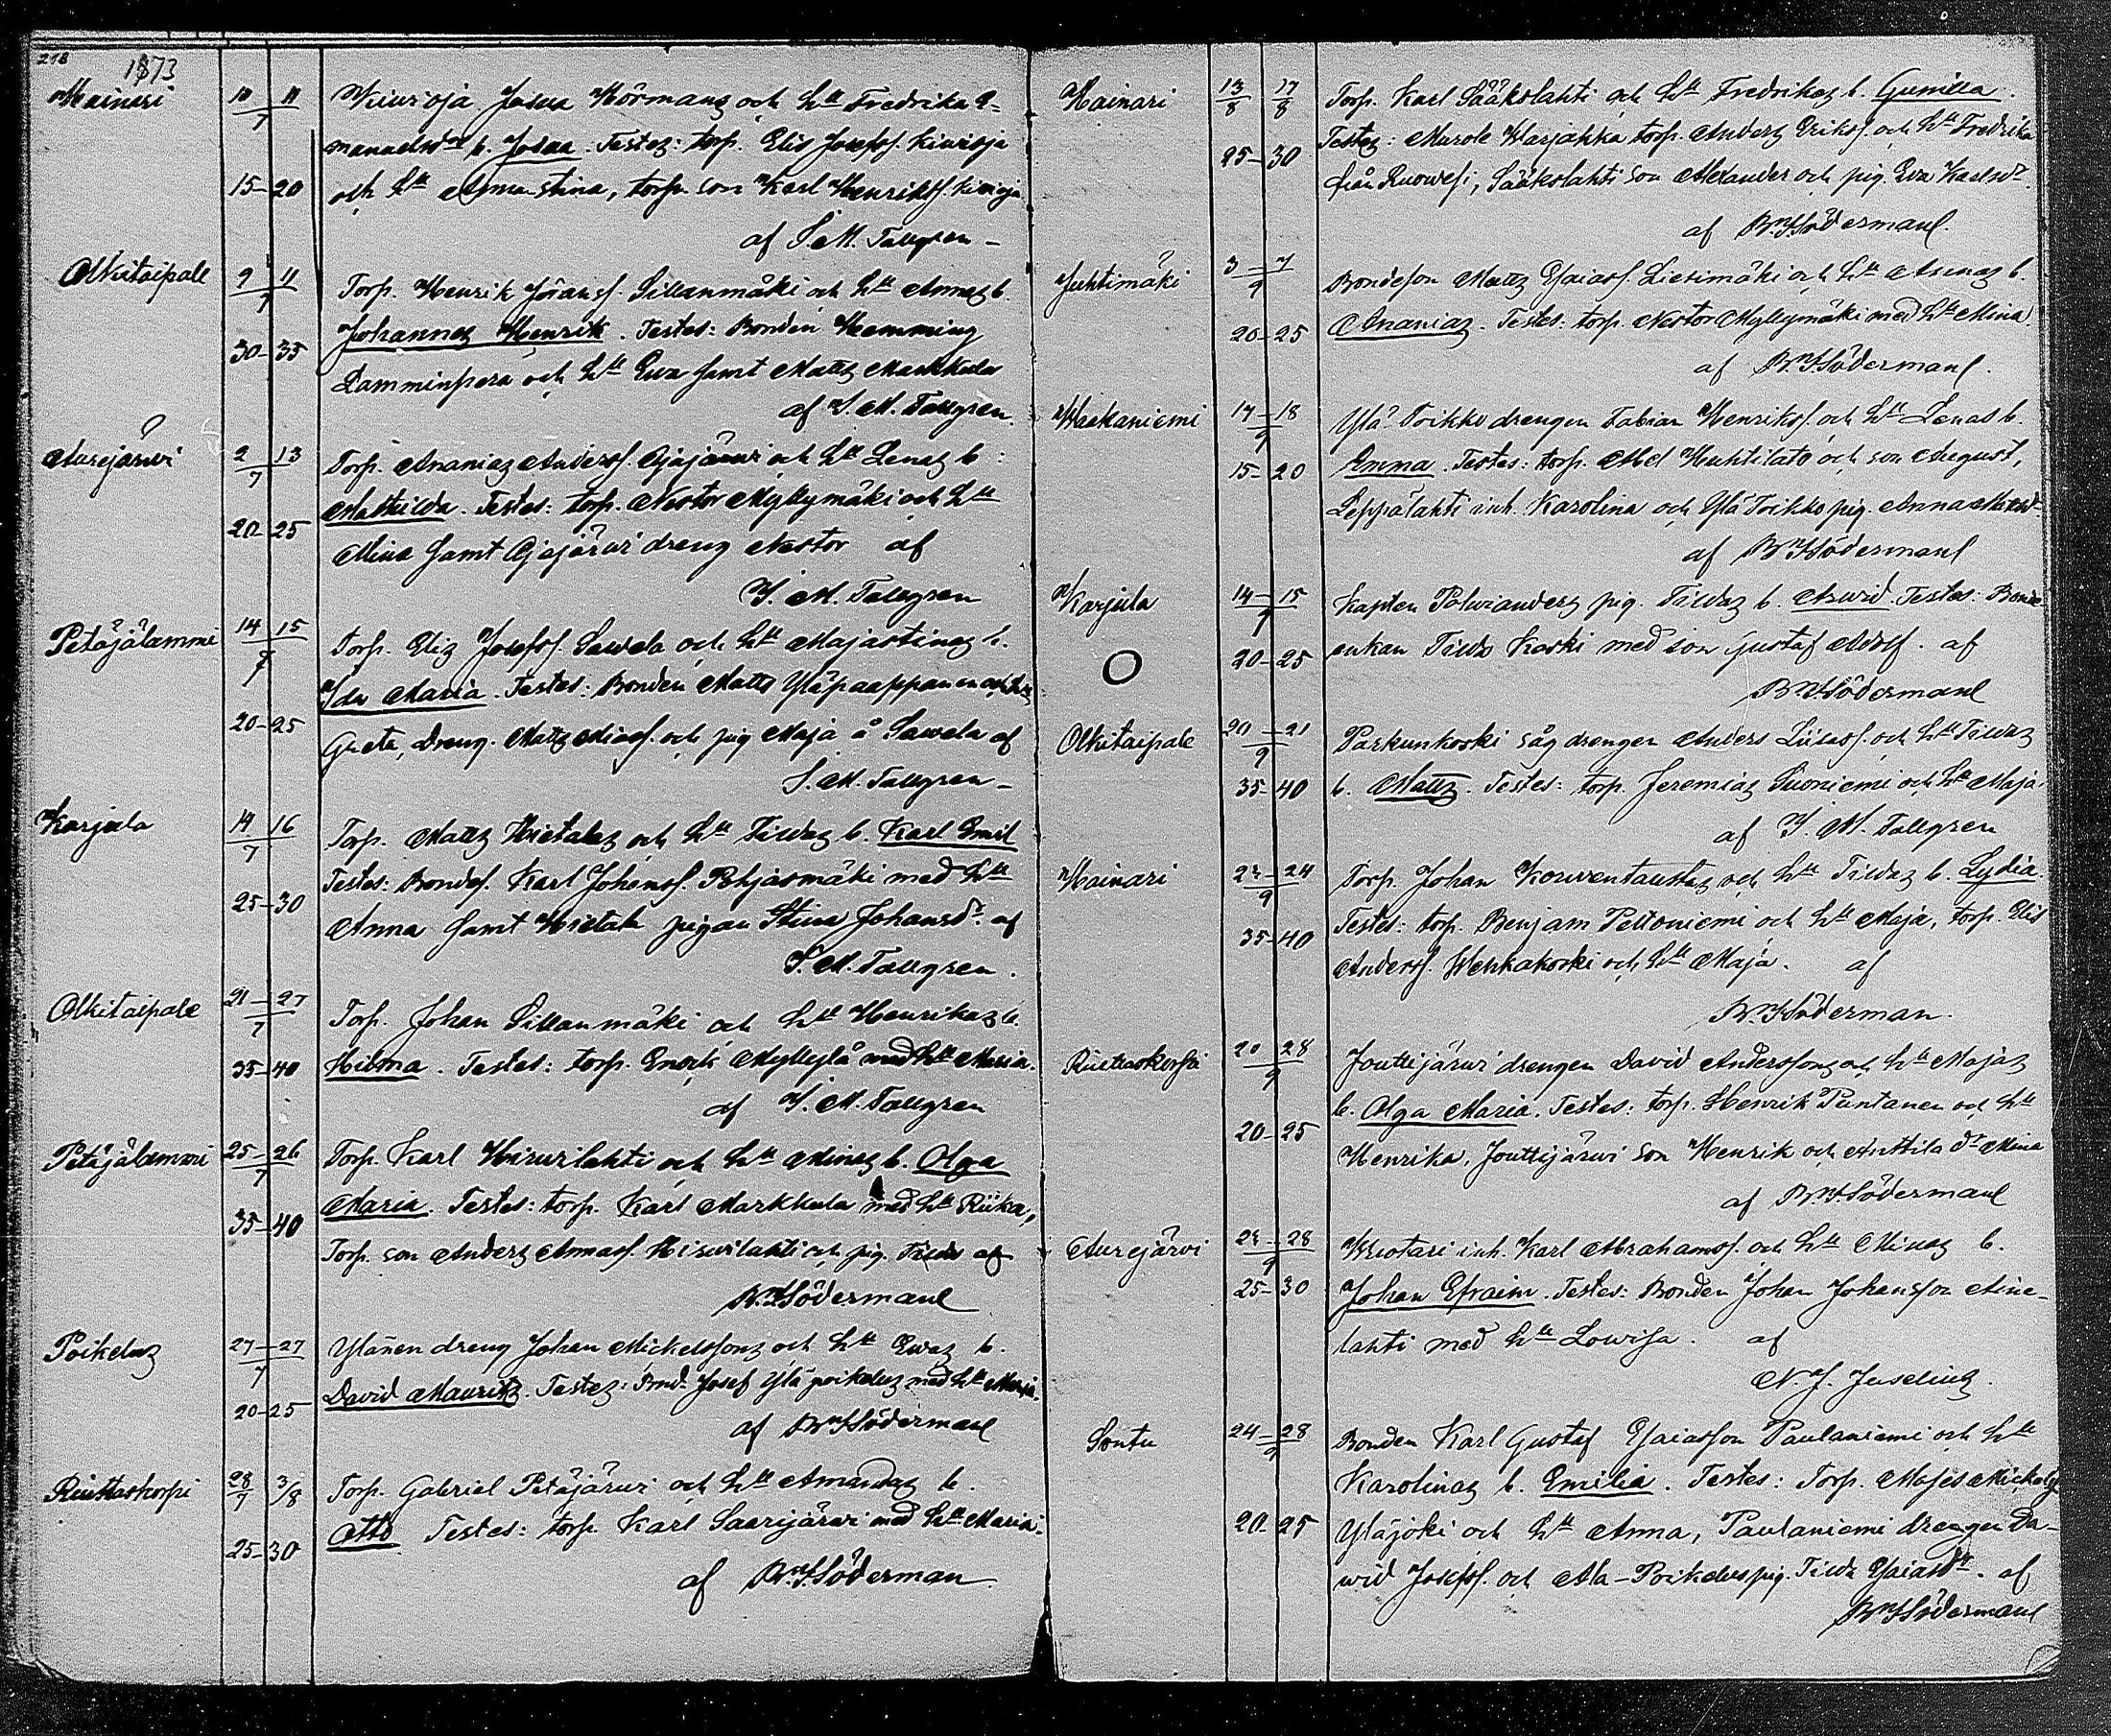 218
1873
Mainari 10 11 Josua Hörmans och Hu Fredrika E-
7 manuelsdr b. Josua. Testes: torp. Elis Josefss. Kiwioja
15-20 och Hu Anna Stina, torp. son Karl Henrikss. Kiwioja
af I. M. Tallgren
Olkitaipale 9 11 Torp. Henrik Göranss. Sillanmäki och Hu Annas b.
7 Johannes Henrik. Testes: Bonden Hemming
30-35 Lamminperä och Hu Ewa samt Matts Markkula
af I. M. Tallgren.
Aurejärwi 2 13 Torp. Ananias Anderss. Ajajärwi och Hu Lenas b:
7 Mathilda. Testes: torp. Nestor Myllymäki och Hu
20-25 Mina samt Ajajärwi dreng Nestor af
I. M. Tallgren
Petäjälammi 14 15 Torp. Elis Josefss. Sawela och Hu Majastinas b.
7 Ida Maria. Testes: Bonden Matts Yläpaappanen och Hu
20-25 Greta, Dreng. Matts och pig Maja å Sawela af
I. M. Tallgren
Karjula 14 16 Torp. Matts Hietalas och Hu Tildas b. Karl Emil
7 Testes: Bondes. Karl Johanss. Pohjasmäki med Hu
25-30 Anna samt Hietala pigan Stina Johansdr. af
I. M. Tallgren.
Olkitaipale 21-27 Torp. Johan Sillanmäki och Hu Henrikas b.
7 Hilma. Testes: torp. Enock Myllylä med Hu Maria.
35-40 af I. M. Tallgren
Petäjälammi 25-26 Torp. Karl Hirwilahti och Hu Minas b. Olga
7 Maria. Testes: torp. Karl Markkula med Hu Riika,
35-40 Torp. son Anders Hirwilahti och pig. Tilda af
Söderman
Poikelus 27-27 Ylänen dreng Johan Mickelssons och Hu Ewas b.
7 David Mauritz. Testes: Bond. Josef Ylä poikelus med Hu Maja.
20-25 af Söderman
Riuttaskorpi 28/7 3/8 Torp. Gabriel Petäjärwi och Hu Amandas b.
25-30 Otto Testes: torp. Karl Saarijärwi med Hu Maria.
af Söderman
Mainari 13/8 17/8 Torp. Karl Sääkslahti och Hu Fredrikas b. Gunilla.
25-30 Testes: Murole Harjakka torp. Anders Erikss. och Hu Fredrika
från Ruowesi, Sääkslahti son Alexander och pig. Ewa Karlsdr.
af Söderman.
Juhtimäki 3-7 Bondeson Matts Esaiass. Liesimäki och Hu Annas b.
9 Ananias. Testes: torp. Nestor Myllymäki med Hu Mina.
20-25 af Söderman.
Haakaniemi 17-18 Ylä Toikko drengen Fabian Henrikss. och Hu Lenas b.
9 Emma. Testes: torp. Abel Huhtilato och son August,
15-20 Leppälahti inh. Karolina och Ylä Toikko pig. Anna
af Söderman
Karjula 14-15 Kapten pig. Tildas b. Arwid. Testes: Bonde
9 enkan Tilda Koski med son Gustaf Adolf. af
20-25 Söderman
Olkitaipale 20-21 Parkunkoski såg drengen Anders och Hu Tildas
9 b. Matts. Testes: torp. Jeremias Suoniemi och Hu Maja.
35-40 af I. M. Tallgren
Mainari 24 Torp. Johan Korwentaustas och Hu Tildas b. Lydia.
9 Testes: torp. Benjam Peltoniemi och Hu Maja, torp. Elis
35-40 Anderss. Wehkakoski och Hu Maja. af
Söderman.
Riuttaskorpi 20 28 Jouttijärwi drengen David Anderssons och Hu Majas
9 b. Olga Maria. Testes: torp. Henrik Puntanen och Hu
20-25 Henrika, Jouttijärwi son Henrik och Anttila dr Mina
af Söderman
Aurejärvi 28 inh. Karl Abrahamss. och Hu Minas b.
9 Johan Efraim. Testes: Bonden Johan Johansson Aine-
25-30 lahti med Hu Lowisa. af
N. J. Juselius.
Sontu 24-28 Bonden Karl Gustaf Esaiasson Paulaniemi och Hu
9 Karolinas b. Emilia. Testes: Torp. Moses Mickelss
20-25 Yläjoki och Hu Anna, Paulaniemi drengen Da-
wid Josefss. och Ala-Poikelus pig. Tilda Esaiasdr. af
Söderman